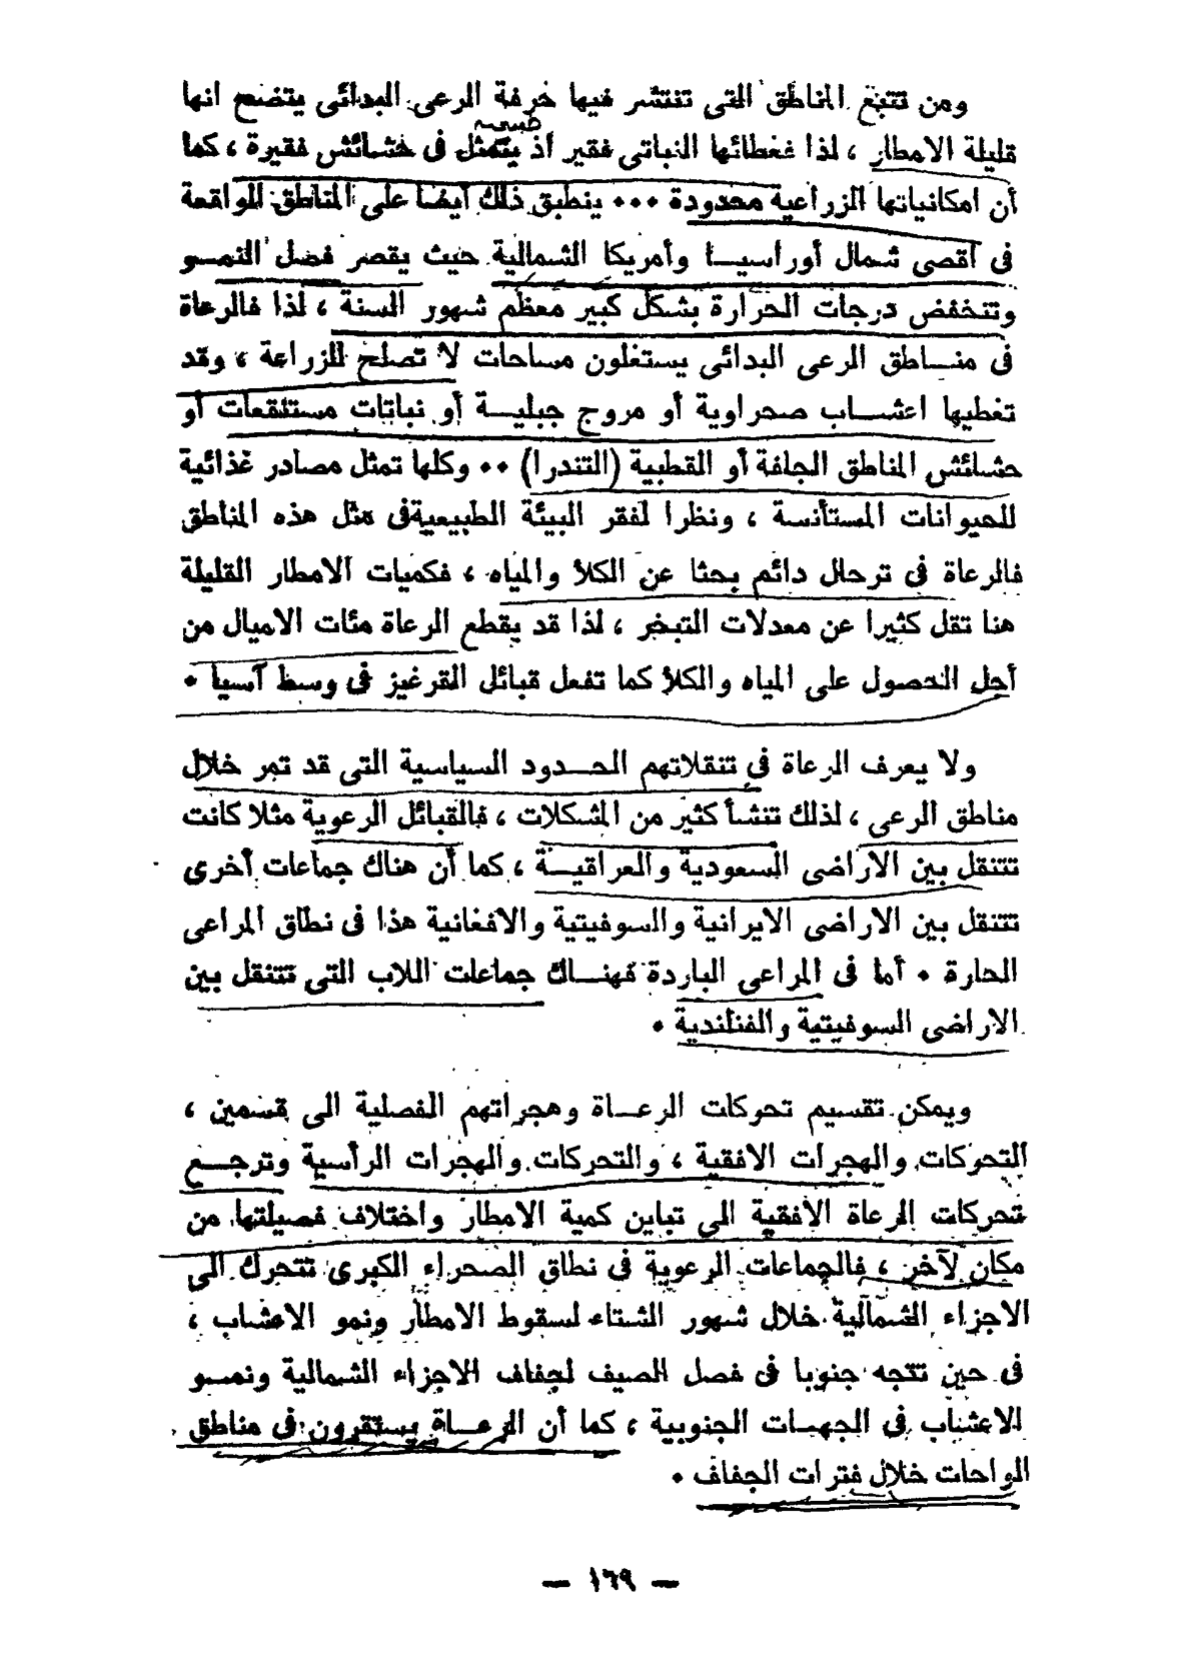 ومن تتبع المناطق التى تنتشر فيها حرفة الرعى البدائى يتضح انها
قليلة الامطار ، لذا فغطائها النباتى فقير أذ يتمثل فى حشائش فقيرة ، كما
أن امكانياتها الزراعية محدودة ٠٠٠ ينطبق ذلك أيضا على المناطق الواقعة
فى أقصى شمال أوراسيا وأمريكا الشمالية حيث يقصر فصل النمو
وتنخفض درجات الحرارة بشكل كبير معظم شهور السنة ، لذا فالرعاة
فى مناطق الرعى البدائى يستغلون مساحات لا تصلح للزراعة ، وقد
تغطيها اعشاب صحراوية أو مروج جبلية أو نباتات مستنقعات أو
حشائش المناطق الجافة أو القطبية (التندرا) ٠٠ وكلها تمثل مصادر غذائية
للحيوانات المستأنسة ، ونظرا لفقر البيئة الطبيعية فى مثل هذه المناطق
فالرعاة فى ترحال دائم بحثا عن الكلأ والمياه ، فكميات الامطار القليلة
هنا تقل كثيرا عن معدلات التبخر ، لذا قد يقطع الرعاة مئات الاميال من
أجل الحصول على المياه والكلأ كما تفعل قبائل القرغيز فى وسط آسيا ٠
ولا يعرف الرعاة فى تنقلاتهم الحدود السياسية التى قد تمر خلال
مناطق الرعى ، لذلك تنشأ كثير من المشكلات ، فالقبائل الرعوية مثلا كانت
تتنقل بين الاراضى السعودية والعراقية ، كما أن هناك جماعات أخرى
تتنقل بين الاراضى الايرانية والسوفيتية والافغانية هذا فى نطاق المراعى
الحارة ٠ أما فى المراعى الباردة فهناك جماعات اللاب التى تتنقل بين
الاراضى السوفيتية والفنلندية ٠
ويمكن تقسيم تحركات الرعاة وهجراتهم الفصلية الى قسمين ،
التحركات والهجرات الافقية ، والتحركات والهجرات الرأسية وترجع
تحركات الرعاة الأفقية الى تباين كمية الامطار واختلاف فصيلتها من
مكان لآخر ، فالجماعات الرعوية فى نطاق الصحراء الكبرى تتحرك الى
الاجزاء الشمالية خلال شهور الشتاء لسقوط الامطار ونمو الاعشاب ،
فى حين تتجه جنوبا فى فصل الصيف لجفاف الاجزاء الشمالية ونمو
الاعشاب فى الجهات الجنوبية ، كما أن الرعاة يستقرون فى مناطق
الواحات خلال فترات الجفاف ٠
— ١٦٩ —